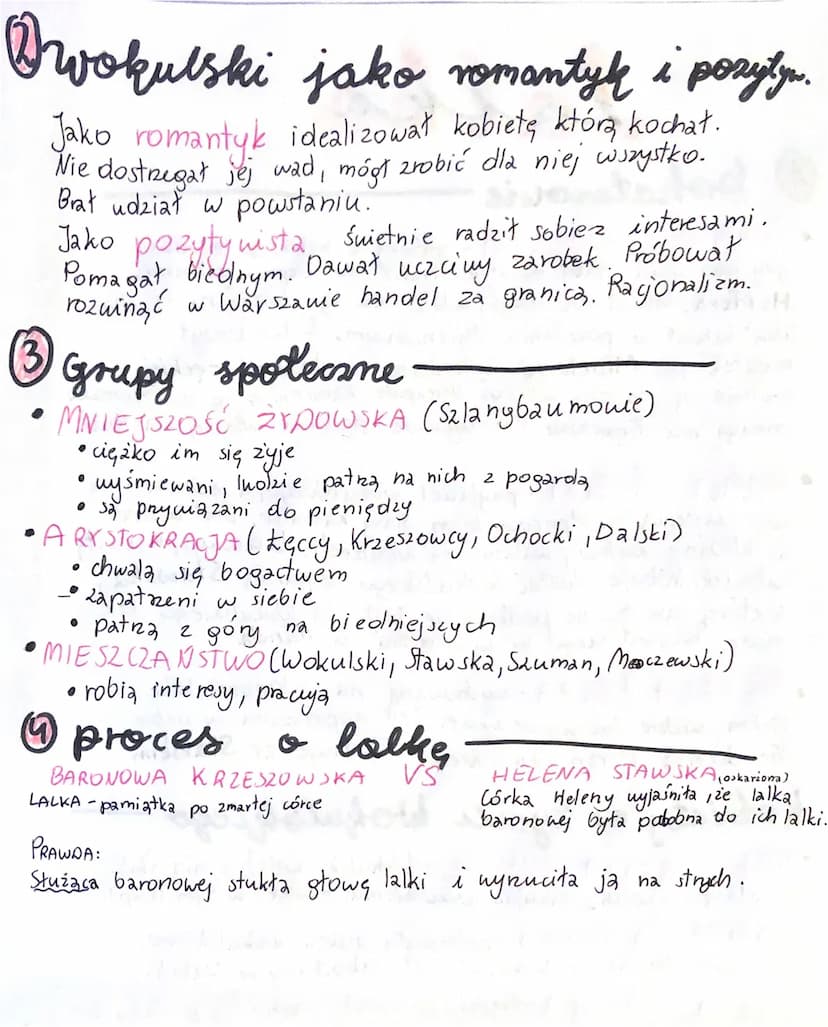 2 Wokulski jako romantyk i pozytyw.
Jako romantyk idealizował kobietę którą kochał.
Nie dostrzegał jej wad, mógł zrobić dla niej wszystko.
Brał udział w powstaniu.
Jako pozytywista świetnie radził sobie z interesami.
Pomagał biednym. Dawał uczciwy zarobek. Próbował
rozwinąć w Warszawie handel za granicą. Racjonalizm.
3 Grupy społeczne
• MNIEJSZOŚĆ ŻYDOWSKA (Szlangbaumowie)
• ciężko im się żyje
• wyśmiewani, ludzie patrzą na nich z pogardą
• są przywiązani do pieniędzy
• ARYSTOKRACJA (Łęccy, Krzeszowcy, Ochocki, Dalski)
• chwalą się bogactwem
• zapatrzeni w siebie
• patrzą z góry na biedniejszych
• MIESZCZAŃSTWO (Wokulski, Stawska, Szuman, Maczewski)
• robią interesy, pracują
4 proces o lalkę
BARONOWA KRZESZOWSKA VS HELENA STAWSKA (oskarżona)
LALKA - pamiątka po zmarłej córce
Córka Heleny wyjaśniła, że lalka
baronowej była podobna do ich lalki.
PRAWDA:
Służąca baronowej stukła głowę lalki i wyrzuciła ją na strych.